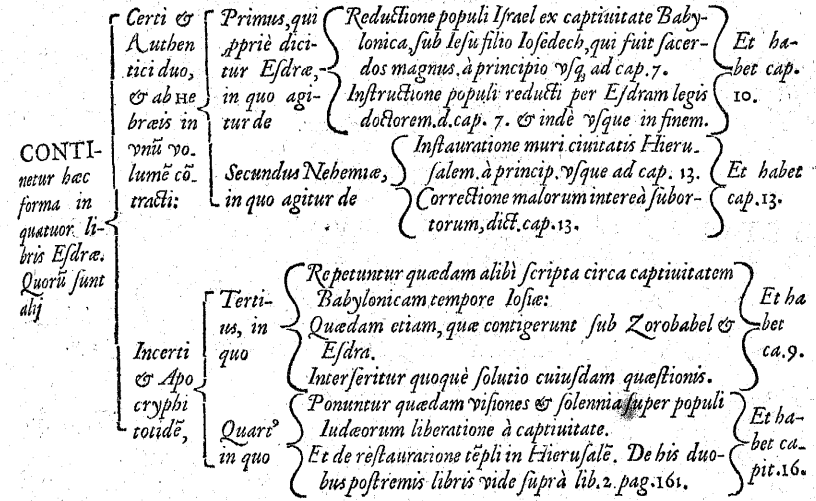 CONTI-
netur hæc
forma in
quatuor li-
bris Eſdræ.
Quorũ ſunt
alij
Certi &
Authen
tici duo,
& ab HE
bræis in
vnũ vo-
lumẽ cõ-
tracti:
Primus, qui
ꝓpriè dici-
tur Eſdræ,
in quo agi-
tur de
Reductione populi Iſrael ex captiuitate Baby-
lonica, ſub Ieſu filio Ioſedech, qui fuit ſacer-
dos magnus. à principio vſq; ad cap. 7.
Inſtructione populi reducti per Eſdram legis
doctorem. d. cap. 7. & indè vſque in finem.
Et ha-
bet cap.
10.
Secundus Nehemiæ,
in quo agitur de
Inſtauratione muri ciuitatis Hieru-
ſalem. à princip. vſque ad cap. 13.
Correctione malorum intereà ſubor-
torum, dict. cap. 13.
Et habet
cap. 13.
Incerti
& Apo
cryphi
totidẽ,
Terti-
us, in
quo
Repetuntur quædam alibì ſcripta circa captiuitatem
Babylonicam tempore Ioſiæ:
Quædam etiam, quæ contigerunt ſub Zorobabel &
Eſdra.
Interſeritur quoquè ſolutio cuiuſdam quæſtionis.
Et ha
bet
ca. 9.
Quartꝰ
in quo
Ponuntur quædam viſiones & ſolennia ſuper populi
Iudæorum liberatione à captiuitate.
Et de reſtauratione tẽpli in Hieruſalẽ. De his duo-
bus poſtremis libris vide ſuprà lib. 2. pag. 161.
Et ha-
bet ca-
pit. 16.